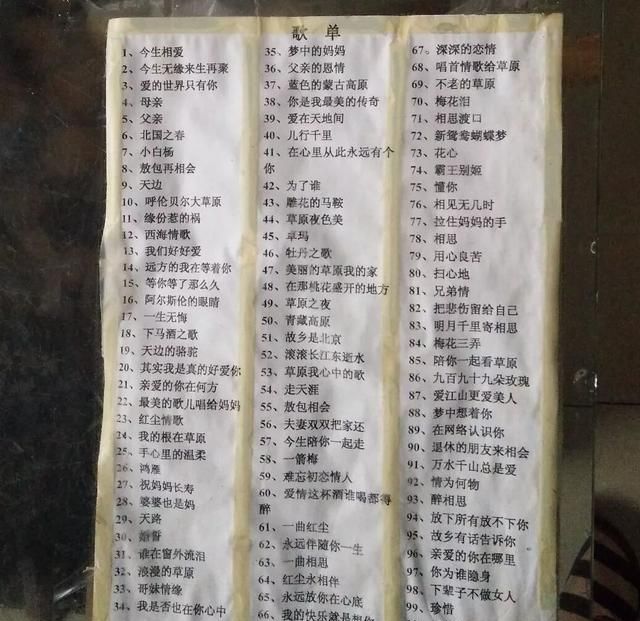 歌 单
1、今生相爱
2、今生无缘来生再聚
3、爱的世界只有你
4、母亲
5、父亲
6、北国之春
7、小白杨
8、敖包再相会
9、天边
10、呼伦贝尔大草原
11、缘份惹的祸
12、西海情歌
13、我们好好爱
14、远方的我在等着你
15、等你等了那么久
16、阿尔斯伦的眼睛
17、一生无悔
18、下马酒之歌
19、天边的骆驼
20、其实我是真的好爱你
21、亲爱的你在何方
22、最美的歌儿唱给妈妈
23、红尘情歌
24、我的根在草原
25、手心里的温柔
26、鸿雁
27、祝妈妈长寿
28、婆婆也是妈
29、天路
30、婚誓
31、谁在窗外流泪
32、浪漫的草原
33、哥妹情缘
34、我是否也在你心中
35、梦中的妈妈
36、父亲的恩情
37、蓝色的蒙古高原
38、你是我最美的传奇
39、爱在天地间
40、儿行千里
41、在心里从此永远有个
你
42、为了谁
43、雕花的马鞍
44、草原夜色美
45、卓玛
46、牡丹之歌
47、美丽的草原我的家
48、在那桃花盛开的地方
49、草原之夜
50、青藏高原
51、故乡是北京
52、滚滚长江东逝水
53、草原我心中的歌
54、走天涯
55、敖包相会
56、夫妻双双把家还
57、今生陪你一起走
58、一箭梅
59、难忘初恋情人
60、爱情这杯酒谁喝都得
醉
61、一曲红尘
62、永远伴随你一生
63、一曲相思
64、红尘永相伴
65、永远放你在心底
66、我的快乐就是想你
67。深深的恋情
68、唱首情歌给草原
69、不老的草原
70、梅花泪
71、相思渡口
72、新鸳鸯蝴蝶梦
73、花心
74、霸王别姬
75、懂你
76、相见无几时
77、拉住妈妈的手
78、相思
79、用心良苦
80、扫心地
81、兄弟情
82、把悲伤留给自己
83、明月千里寄相思
84、梅花三弄
85、陪你一起看草原
86、九百九十九朵玫瑰
87、爱江山更爱美人
88、梦中想着你
89、在网络认识你
90、退休的朋友来相会
91、万水千山总是爱
92、情为何物
93、醉相思
94、放下所有放不下你
95、故乡有话告诉你
96、亲爱的你在哪里
97、你为谁隐身
98、下辈子不做女人
99、珍惜